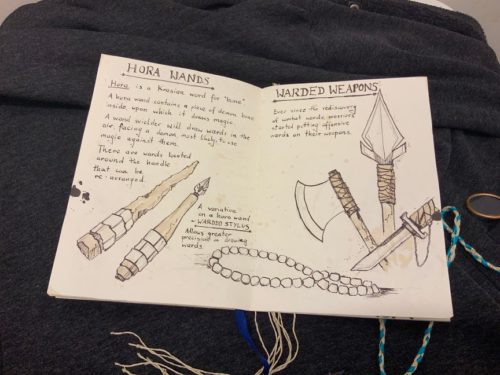 HORA WANDS
Hora is a Krasian word for "bone".
A hora wand contains a piece of demon bone
inside upon which it draws magic.
A wand wielder will draw wards in the
air, facing a demon most likely, to use
magic against them.
There are wards located
around the handle
that can be
re-arranged.
A variation
on a hora wand
- WARDED STYLUS.
Allows greater
precision in drawing
wards.
WARDED WEAPONS
Ever since the rediscovery
of combat wards warriors
started putting offensive
wards on their weapons.